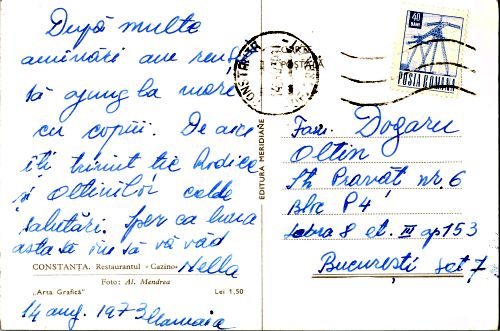 După multe
amânări am reușit
să ajung la mare
cu copiii. De aici
îți trimit ție Rodica
și Oltinilor calde
salutări. Sper ca luna
asta să vă văd
Nella
CONSTANȚA. Restaurantul «Cazino»
Foto: Al. Mendrea
„Arta Grafică”
Lei 1,50
14 aug. 1973 Mamaia
EDITURA MERIDIANE
CONSTANȚA
POSTA ROMANA
40
BANI
Fam. Dogaru
Oltin
Str. Pravăț nr. 6
Bloc P4
Scara 8 et. III ap 153
București Sect 7